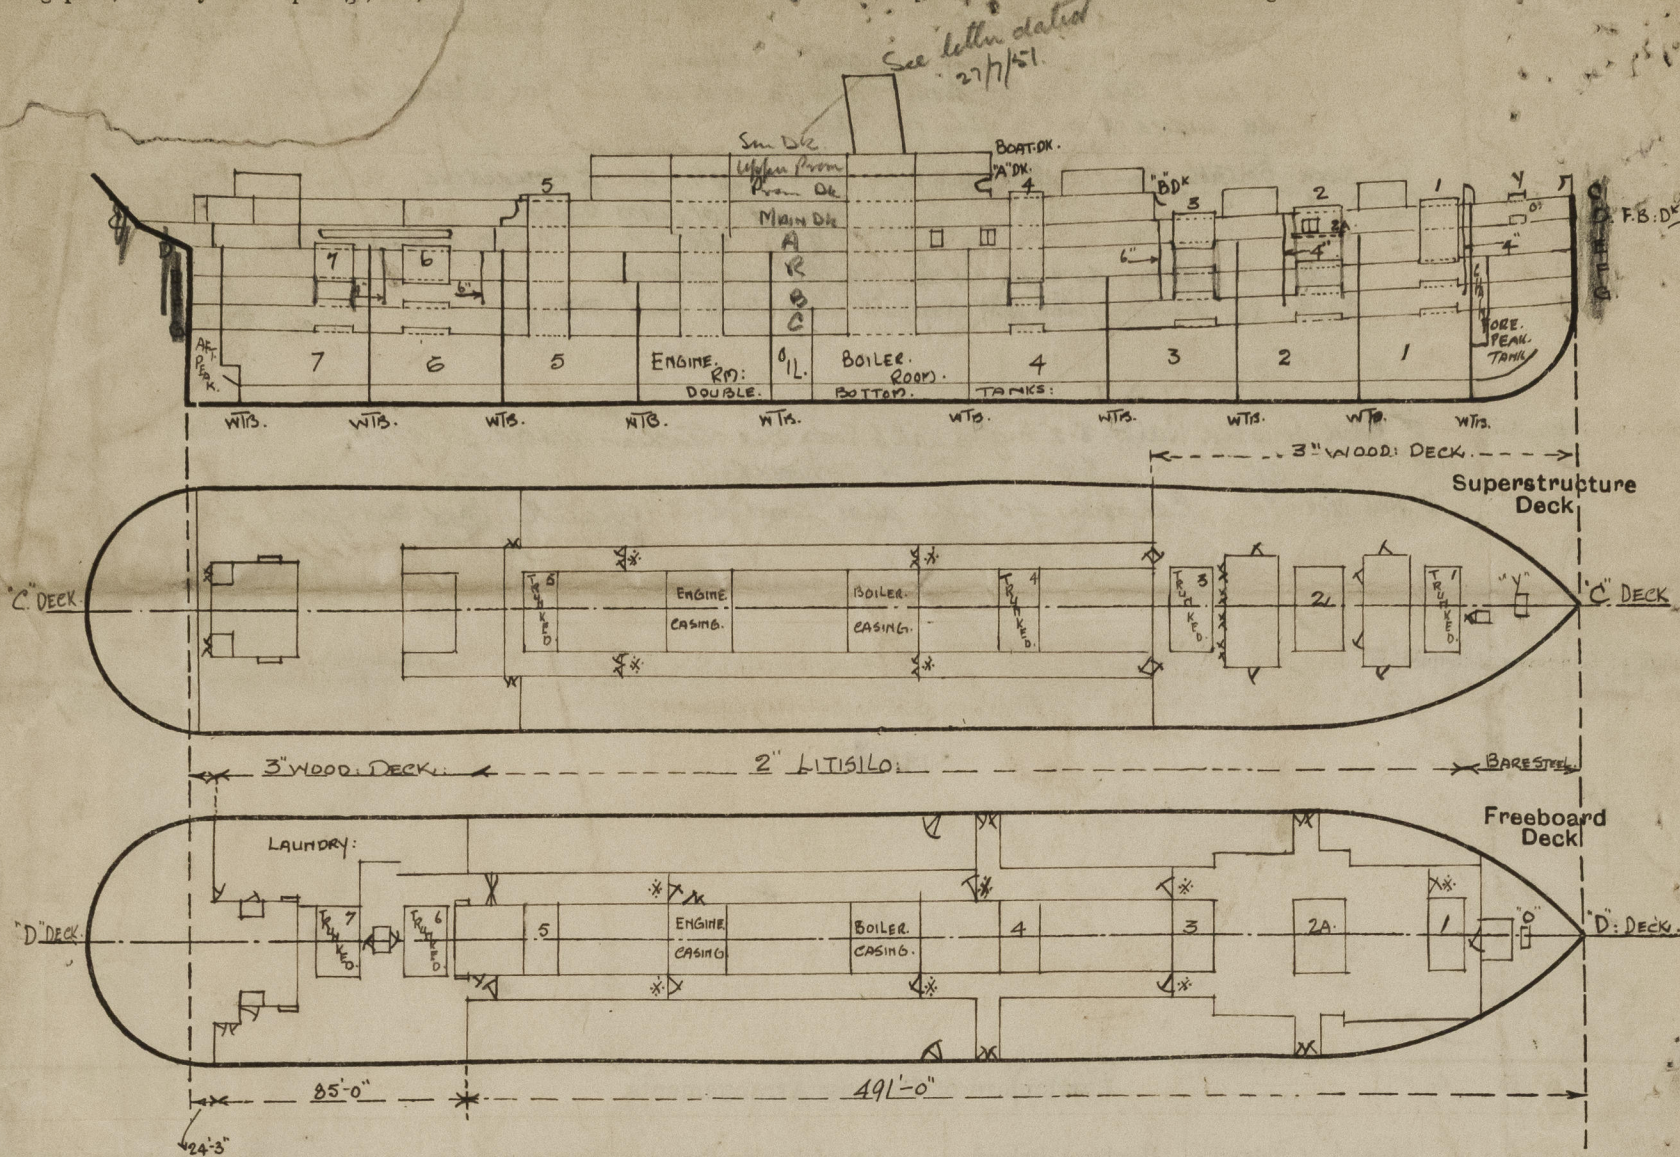 See letter dated
27/7/51.
Sun Dk
Upper Prom
Prom Dk
MAIN DK
A
R
B
C
BOAT.DK.
"A"DK.
"B"DK
F.B:DK
5
4
3
2
2A
1
Y
O
7
6
6"
6"
4"
4"
C
D
E
F
G
AFT
PEAK.
7
6
5
ENGINE.
RM:
OIL.
BOILER.
ROOM.
4
3
2
1
FORE.
PEAK.
TANK
DOUBLE. BOTTOM. TANKS:
WTB. WTB. WTB. WTB. WTB. WTB. WTB. WTB. WTB. WTB.
3" WOOD: DECK.
Superstructure
Deck
"C" DECK
5 TRUNKED.
ENGINE
CASING.
BOILER.
CASING.
4 TRUNKED.
3 TRUNKED.
2
1 TRUNKED.
"Y"
"C" DECK
3" WOOD: DECK:
2" LITISILO:
BARE STEEL.
Freeboard
Deck
LAUNDRY:
"D" DECK.
7 TRUNKED.
6 TRUNKED.
5
ENGINE
CASING
BOILER.
CASING.
4
3
2A.
1
"O"
"D": DECK.
85'-0"
491'-0"
24'-3"